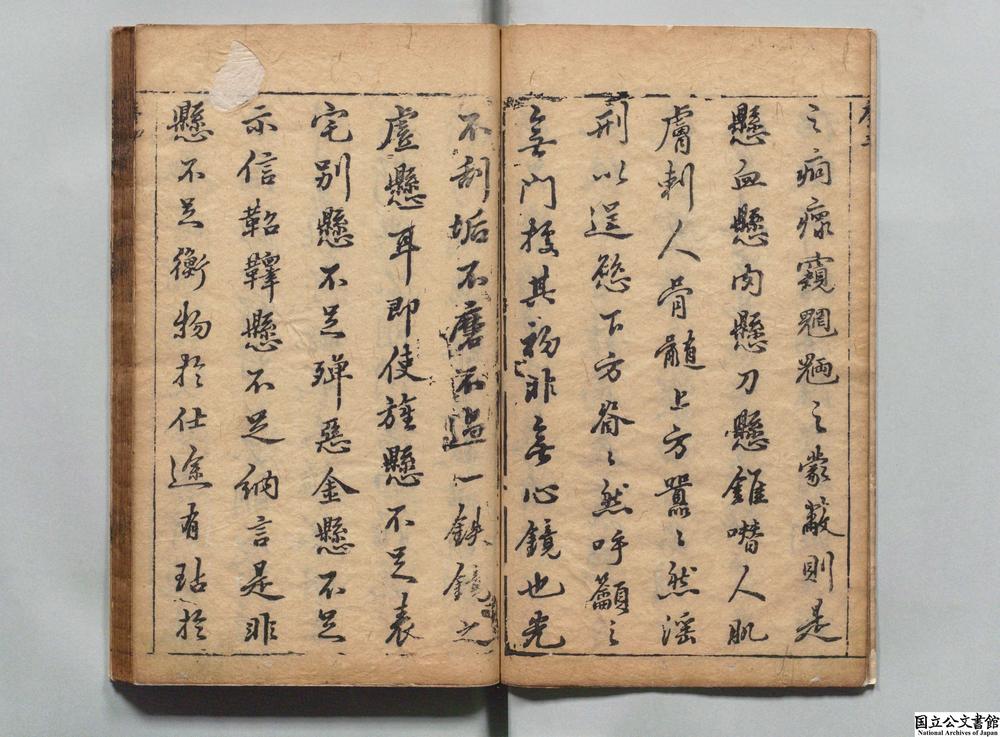 之痌瘝窺魍魎之蒙蔽則是
懸血懸肉懸刀懸錐噆人肌
膚刺人骨髓上方囂〻然淫
刑以逞慾下方脊〻然呼籲之
無門授其初非無心鏡也先
不刮垢不磨不過一鉄鏡之
虛懸耳即使旌懸不足表
宅別懸不足殫惡金懸不足
示信鞀鞸懸不足納言是非
懸不足衡物於仕途有玷於
国立公文書館
National Archives of Japan